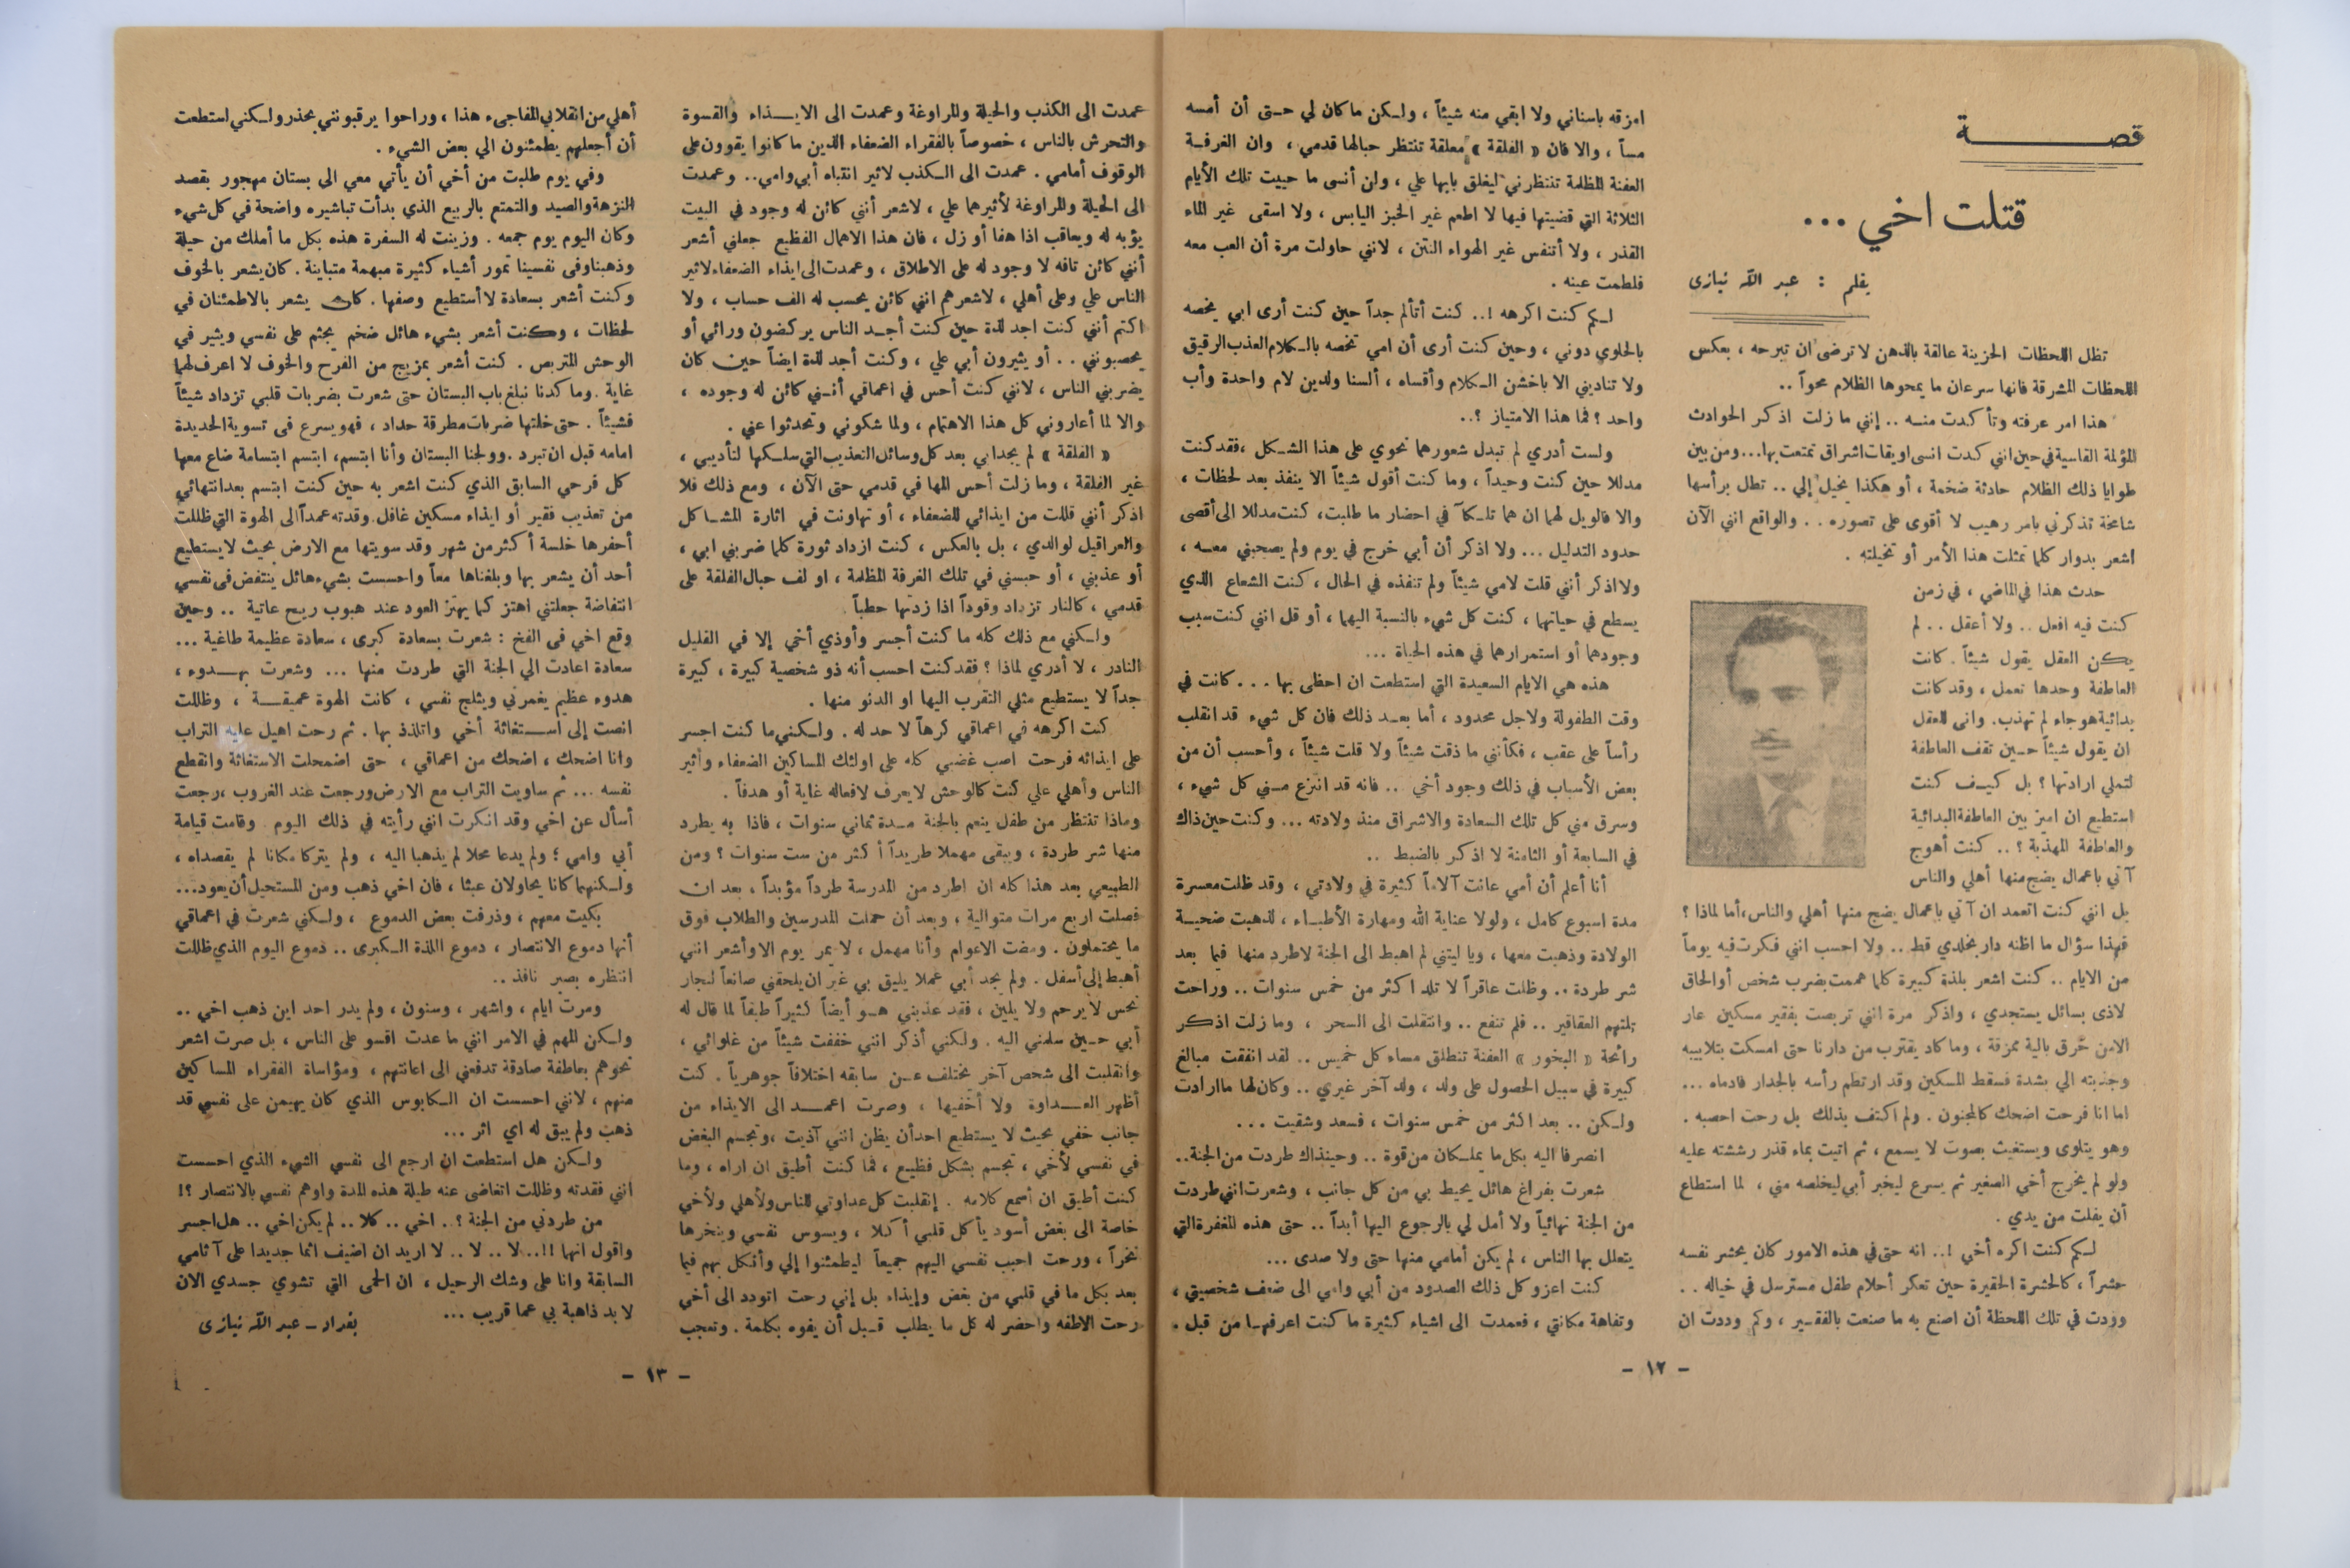 قصة
قتلت اخي ...
بقلم : عبد الله نيازى
تظل اللحظات الحزينة عالقة بالذهن لا ترضى ان تبرحه ، بعكس
اللحظات المشرقة فانها سرعان ما يمحوها الظلام محواً ..
هذا امر عرفته وتأكدت منه .. إنني ما زلت اذكر الحوادث
المؤلمة القاسية في حين انني كدت انسى اويقات اشراق تمتعت بها... ومن بين
طوايا ذلك الظلام حادثة ضخمة ، أو هكذا نخيل إلي .. تطل برأسها
شامخة تذكرني بامر رهيب لا أقوى على تصوره . . والواقع انني الآن
اشعر بدوار كلما تمثلت هذا الأمر أو تخيلته .
حدث هذا في الماضي ، في زمن
كنت فيه افعل .. ولا أعقل .. لم
يكن العقل يقول شيئاً . كانت
العاطفة وحدها تعمل ، وقد كانت
بدائية هوجاء لم تهذب. وانى للعقل
ان يقول شيئاً حين تقف العاطفة
لتملي ارادتها ؟ بل كيف كنت
استطيع ان اميز بين العاطفة البدائية
والعاطفة المهذبة ؟ .. كنت أهوج
آتي باعمال يضج منها أهلي والناس
بل انني كنت اتعمد ان آتي باعمال يضج منها أهلي والناس، أما لماذا ؟
فهذا سؤال ما اظنه دار بخلدي قط .. ولا احسب انني فكرت فيه يوماً
من الايام .. كنت اشعر بلذة كبيرة كلما هممت بضرب شخص أو الحاق
لاذى بسائل يستجدي ، واذكر مرة انني تربصت بفقير مسكين عار
الامن خرق بالية ممزقة ، وما كاد يقترب من دارنا حتى امسكت بتلابيبه
وجذبته الي بشدة فسقط المسكين وقد ارتطم رأسه بالجدار فادماه ...
اما انا فرحت اضحك كالمجنون . ولم اكتف بذلك بل رحت احصبه .
وهو يتلوى ويستغيث بصوت لا يسمع ، ثم اتيت بماء قذر رششته عليه
ولو لم يخرج أخي الصغير ثم يسرع ليخبر أبي ليخلصه مني ، لما استطاع
أن يفلت من يدي .
لكم كنت اكره أخي !.. انه حتى في هذه الامور كان يحشر نفسه
حشراً ، كالحشرة الحقيرة حين تعكر أحلام طفل مسترسل في خياله . .
وودت في تلك اللحظة أن اصنع به ما صنعت بالفقير ، وكم وددت ان
امزقه باسناني ولا ابقي منه شيئاً ، ولكن ما كان لي حتى أن أمسه
مساً ، والا فان « الفلقة » معلقة تنتظر حبالها قدمي ، وان الغرفة
العفنة المظلمة تنتظرني ليغلق بابها علي ، ولن أنسى ما حييت تلك الأيام
الثلاثة التي قضيتها فيها لا اطعم غير الخبز اليابس ، ولا اسقى غير الماء
القذر ، ولا أتنفس غير الهواء النتن ، لانني حاولت مرة أن العب معه
فلطمت عينه .
لكم كنت اكرهه !.. كنت أتألم جداً حين كنت أرى ابي يخصه
بالحلوى دوني ، وحين كنت أرى أن امي تخصه بالكلام العذب الرقيق
ولا تناديني الا باخشن الكلام وأقساه ، ألسنا ولدين لام واحدة وأب
واحد ؟ فما هذا الامتياز ؟..
ولست أدري لم تبدل شعورهما نحوي على هذا الشكل ، فقد كنت
مدللا حين كنت وحيداً ، وما كنت أقول شيئاً الا ينفذ بعد لحظات ،
والا فالويل لهما ان هما تلكآ في احضار ما طلبت، كنت مدللا الى أقصى
حدود التدليل ... ولا اذكر أن أبي خرج في يوم ولم يصحبني معه ،
ولا اذكر أنني قلت لامي شيئاً ولم تنفذه في الحال ، كنت الشعاع الذي
يسطع في حياتهما ، كنت كل شيء بالنسبة اليهما ، أو قل انني كنت سبب
وجودهما أو استمرارهما في هذه الحياة ...
هذه هي الايام السعيدة التي استطعت ان احظى بها . . . كانت في
وقت الطفولة ولاجل محدود ، أما بعد ذلك فان كل شيء قد انقلب
رأساً على عقب ، فكأنني ما ذقت شيئاً ولا قلت شيئاً ، وأحسب أن من
بعض الأسباب في ذلك وجود أخي .. فانه قد انتزع مني كل شيء ،
وسرق مني كل تلك السعادة والاشراق منذ ولادته ... وكنت حين ذاك
في السابعة أو الثامنة لا اذكر بالضبط ..
أنا أعلم أن أمي عانت آلاماً كثيرة في ولادتي ، وقد ظلت معسرة
مدة اسبوع كامل ، ولولا عناية الله ومهارة الأطباء ، لذهبت ضحية
الولادة وذهبت معها ، ويا ليتني لم اهبط الى الجنة لاطرد منها فيما بعد
شر طردة .. وظلت عاقراً لا تلد اكثر من خمس سنوات .. وراحت
تلتهم العقاقير .. فلم تنفع .. وانتقلت الى السحر ، وما زلت اذكر
رائحة « البخور » العفنة تنطلق مساء كل خميس .. لقد انفقت مبالغ
كبيرة في سبيل الحصول على ولد ، ولد آخر غيري .. وكان لها ما ارادت
ولكن .. بعد اكثر من خمس سنوات ، فسعد وشقيت ...
انصرفا اليه بكل ما يملكان من قوة .. وحينذاك طردت من الجنة..
شعرت بفراغ هائل يحيط بي من كل جانب ، وشعرت انني طردت
من الجنة نهائياً ولا أمل لي بالرجوع اليها أبداً .. حتى هذه المغفرة التي
يتعلل بها الناس ، لم يكن أمامي منها حتى ولا صدى ...
كنت اعزو كل ذلك الصدود من أبي وامي الى ضعف شخصيتي ،
وتفاهة مكانتي ، فعمدت الى اشياء كثيرة ما كنت اعرفها من قبل .
- ١٢ -
عمدت الى الكذب والحيلة والمراوغة وعمدت الى الايذاء والقسوة
والتحرش بالناس ، خصوصاً بالفقراء الضعفاء الذين ما كانوا يقوون على
الوقوف أمامي . عمدت الى الكذب لاثير انتباه أبي وامي.. وعمدت
الى الحيلة والمراوغة لأثيرهما علي ، لاشعر أنني كائن له وجود في البيت
يؤبه له ويعاقب اذا هفا أو زل ، فان هذا الاهمال الفظيع جعلني أشعر
أنني كائن تافه لا وجود له على الاطلاق ، وعمدت الى ايذاء الضعفاء لاثير
الناس علي وعلى أهلي ، لاشعرهم انني كائن يحسب له الف حساب ، ولا
اكتم أنني كنت اجد لذة حين كنت أجد الناس يركضون ورائي أو
يحصبونني . . أو يثيرون أبي علي ، وكنت أجد لذة ايضاً حين كان
يضربني الناس ، لانني كنت أحس في اعماقي أنني كائن له وجوده ،
والا لما أعاروني كل هذا الاهتمام ، ولما شكوني وتحدثوا عني .
« الفلقة » لم يجد ابي بعد كل وسائل التعذيب التي سلكها لتأديبي ،
غير الفلقة ، وما زلت أحس المها في قدمي حتى الآن ، ومع ذلك فلا
اذكر أنني قللت من ايذائي للضعفاء ، أو تهاونت في اثارة المشاكل
والعراقيل لوالدي ، بل بالعكس ، كنت ازداد ثورة كلما ضربني ابي ،
أو عذبني ، أو حبسني في تلك الغرفة المظلمة ، او لف حبال الفلقة على
قدمي ، كالنار تزداد وقوداً اذا زدتها حطباً .
ولكني مع ذلك كله ما كنت أجسر وأوذي أخي إلا في القليل
النادر ، لا أدري لماذا ؟ فقد كنت احسب أنه ذو شخصية كبيرة ، كبيرة
جداً لا يستطيع مثلي التقرب اليها او الدنو منها .
كنت اكرهه في اعماقي كرهاً لا حد له . ولكني ما كنت اجسر
على ايذائه فرحت اصب غضبي كله على اولئك المساكين الضعفاء واثير
الناس وأهلي علي كنت كالوحش لا يعرف لافعاله غاية أو هدفاً .
وماذا تنتظر من طفل ينعم بالجنة مدة ثماني سنوات ، فاذا به يطرد
منها شر طردة ، ويبقى مهملا طريداً أكثر من ست سنوات ؟ ومن
الطبيعي بعد هذا كله ان اطرد من المدرسة طرداً مؤبداً ، بعد ان
فصلت اربع مرات متوالية ، وبعد أن حملت المدرسين والطلاب فوق
ما يحتملون . ومضت الاعوام وأنا مهمل ، لا يمر يوم الا وأشعر انني
أهبط إلى أسفل . ولم يجد أبي عملا يليق بي غير ان يلحقني صانعاً لنجار
نحس لا يرحم ولا يلين ، فقد عذبني هو أيضاً كثيراً طبقاً لما قال له
أبي حين سلمني اليه . ولكني أذكر انني خففت شيئاً من غلوائي ،
وانقلبت الى شخص آخر مختلف عن سابقه اختلافاً جوهرياً . كنت
أظهر العداوة ولا أخفيها ، وصرت اعمد الى الايذاء من
جانب خفي بحيث لا يستطيع احد أن يظن انني آذيت ، وتجسم البغض
في نفسي لأخي ، تجسم بشكل فظيع ، فما كنت أطيق ان اراه ، وما
كنت أطيق ان أسمع كلامه . إنقلبت كل عداوتي للناس ولأهلي ولأخي
خاصة الى بغض أسود يأكل قلبي أكلا ، ويسوس نفسي وينخرها
نخراً ، ورحت احبب نفسي اليهم جميعاً ليطمئنوا إلي وأفتك بهم فيما
بعد بكل ما في قلبي من بغض وإيذاء بل إني رحت اتودد الى أخي
رحت الاطفه واحضر له كل ما يطلب قبل أن يفوه بكلمة . وتعجب
أهلي من انقلابي المفاجىء هذا ، وراحوا يرقبونني بحذر ولكني استطعت
أن أجعلهم يطمئنون الي بعض الشيء .
وفي يوم طلبت من أخي أن يأتي معي الى بستان مهجور بقصد
النزهة والصيد والتمتع بالربيع الذي بدأت تباشيره واضحة في كل شيء
وكان اليوم يوم جمعه . وزينت له السفرة هذه بكل ما أملك من حيلة
وذهبنا وفى نفسينا تمور أشياء كثيرة مبهمة متباينة . كان يشعر بالخوف
وكنت أشعر بسعادة لا أستطيع وصفها . كان يشعر بالاطمئنان في
لحظات ، وكنت أشعر بشيء هائل ضخم يجثم على نفسي ويثير في
الوحش المتربص . كنت أشعر بمزيج من الفرح والخوف لا اعرف لهما
غاية . وما كدنا نبلغ باب البستان حتى شعرت بضربات قلبي تزداد شيئاً
فشيئاً . حتى خلتها ضربات مطرقة حداد ، فهو يسرع فى تسوية الحديدة
امامه قبل ان تبرد . وولجنا البستان وأنا ابتسم، ابتسم ابتسامة ضاع معها
كل فرحي السابق الذي كنت اشعر به حين كنت ابتسم بعد انتهائي
من تعذيب فقير أو ايذاء مسكين غافل. وقدته عمداً الى الهوة التي ظللت
أحفرها خلسة أكثر من شهر وقد سويتها مع الارض بحيث لا يستطيع
أحد أن يشعر بها وبلغناها معاً واحسست بشيء هائل ينتفض فى نفسي
انتفاضة جعلتني اهتز كما يهتز العود عند هبوب ريح عاتية .. وحين
وقع اخي فى الفخ : شعرت بسعادة كبرى ، سعادة عظيمة طاغية ...
سعادة اعادت الي الجنة التي طردت منها ... وشعرت بهدوء ،
هدوء عظيم يغمرني ويثلج نفسي ، كانت الهوة عميقة ، وظللت
انصت إلى استغاثة أخي واتلذذ بها . ثم رحت اهيل عليه التراب
وانا اضحك ، اضحك من اعماقي ، حتى اضمحلت الاستغاثة وانقطع
نفسه ... ثم ساويت التراب مع الارض ورجعت عند الغروب ، رجعت
أسأل عن اخي وقد انكرت انني رأيته في ذلك اليوم وقامت قيامة
أبي وامي ؛ ولم يدعا محلا لم يذهبا اليه ، ولم يتركا مكانا لم يقصداه ،
ولكنهما كانا يحاولان عبثا ، فان اخي ذهب ومن المستحيل أن يعود...
بكيت معهم ، وذرفت بعض الدموع ، ولكني شعرت في اعماقي
أنها دموع الانتصار ، دموع اللذة الكبرى .. دموع اليوم الذي ظللت
انتظره بصبر نافذ ..
ومرت ايام ، واشهر ، وسنون ، ولم يدر احد اين ذهب اخي ..
ولكن المهم في الامر انني ما عدت اقسو على الناس ، بل صرت اشعر
نحوهم بعاطفة صادقة تدفعني الى اعانتهم ، ومؤاساة الفقراء المساكين
منهم ، لانني احسست ان الكابوس الذي كان يهيمن على نفسي قد
ذهب ولم يبق له اي اثر ...
ولكن هل استطعت ان ارجع الى نفسي الشيء الذي احسست
انني فقدته وظللت اتغاضى عنه طيلة هذه المدة واوهم نفسي بالانتصار ؟!
من طردني من الجنة ؟ .. اخي .. كلا .. لم يكن اخي .. هل اجسر
واقول انها !!.. لا .. لا .. لا اريد ان اضيف اثما جديدا على آثامي
السابقة وانا على وشك الرحيل ، ان الحمى التي تشوي جسدي الان
لا بد ذاهبة بي عما قريب ...
بغداد - عبد الله نيازى
- ١٣ -